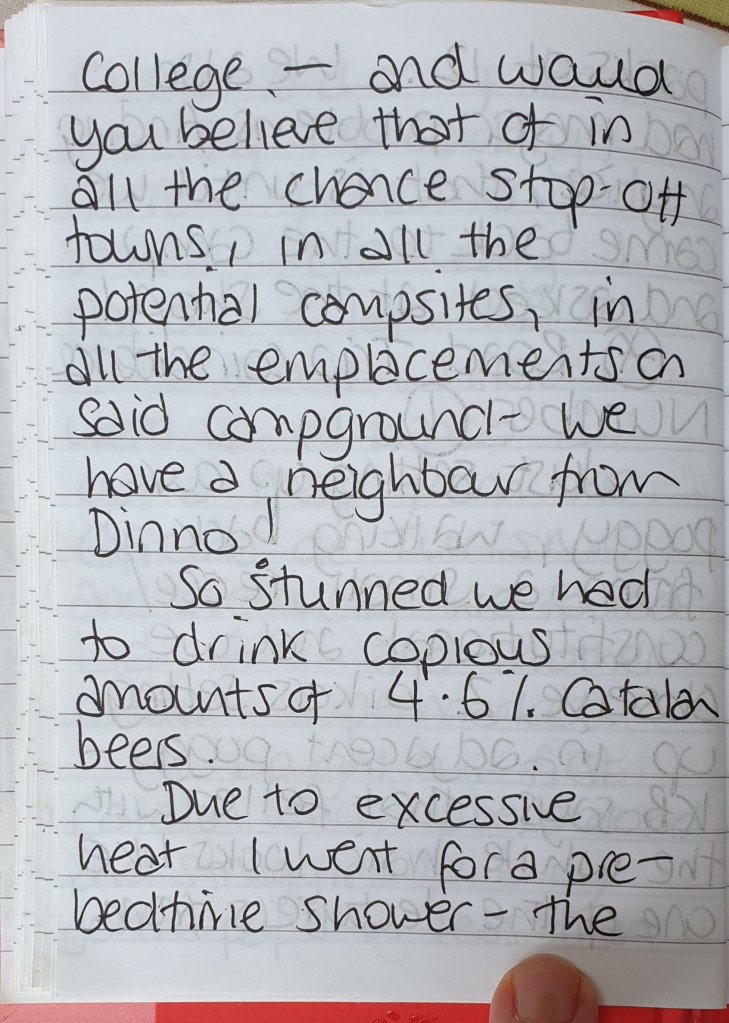 College. – and would
you believe that of in
all the chance stop-off
towns, in all the
potential campsites, in
all the emplacements on
said campground – we
have a neighbour from
Dinno!
So stunned we had
to drink copious
amounts of 4.6% Catalan
beers.
Due to excessive
heat I went for a pre-
bedtime shower – the